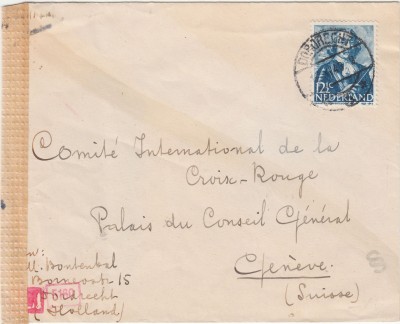 DORDRECHT
12½c
NEDERLAND
Comité International de la
Croix-Rouge
Palais du Conseil Général
Genève
(Suisse)
M. Bontenbal
15
Dordrecht
(Holland)